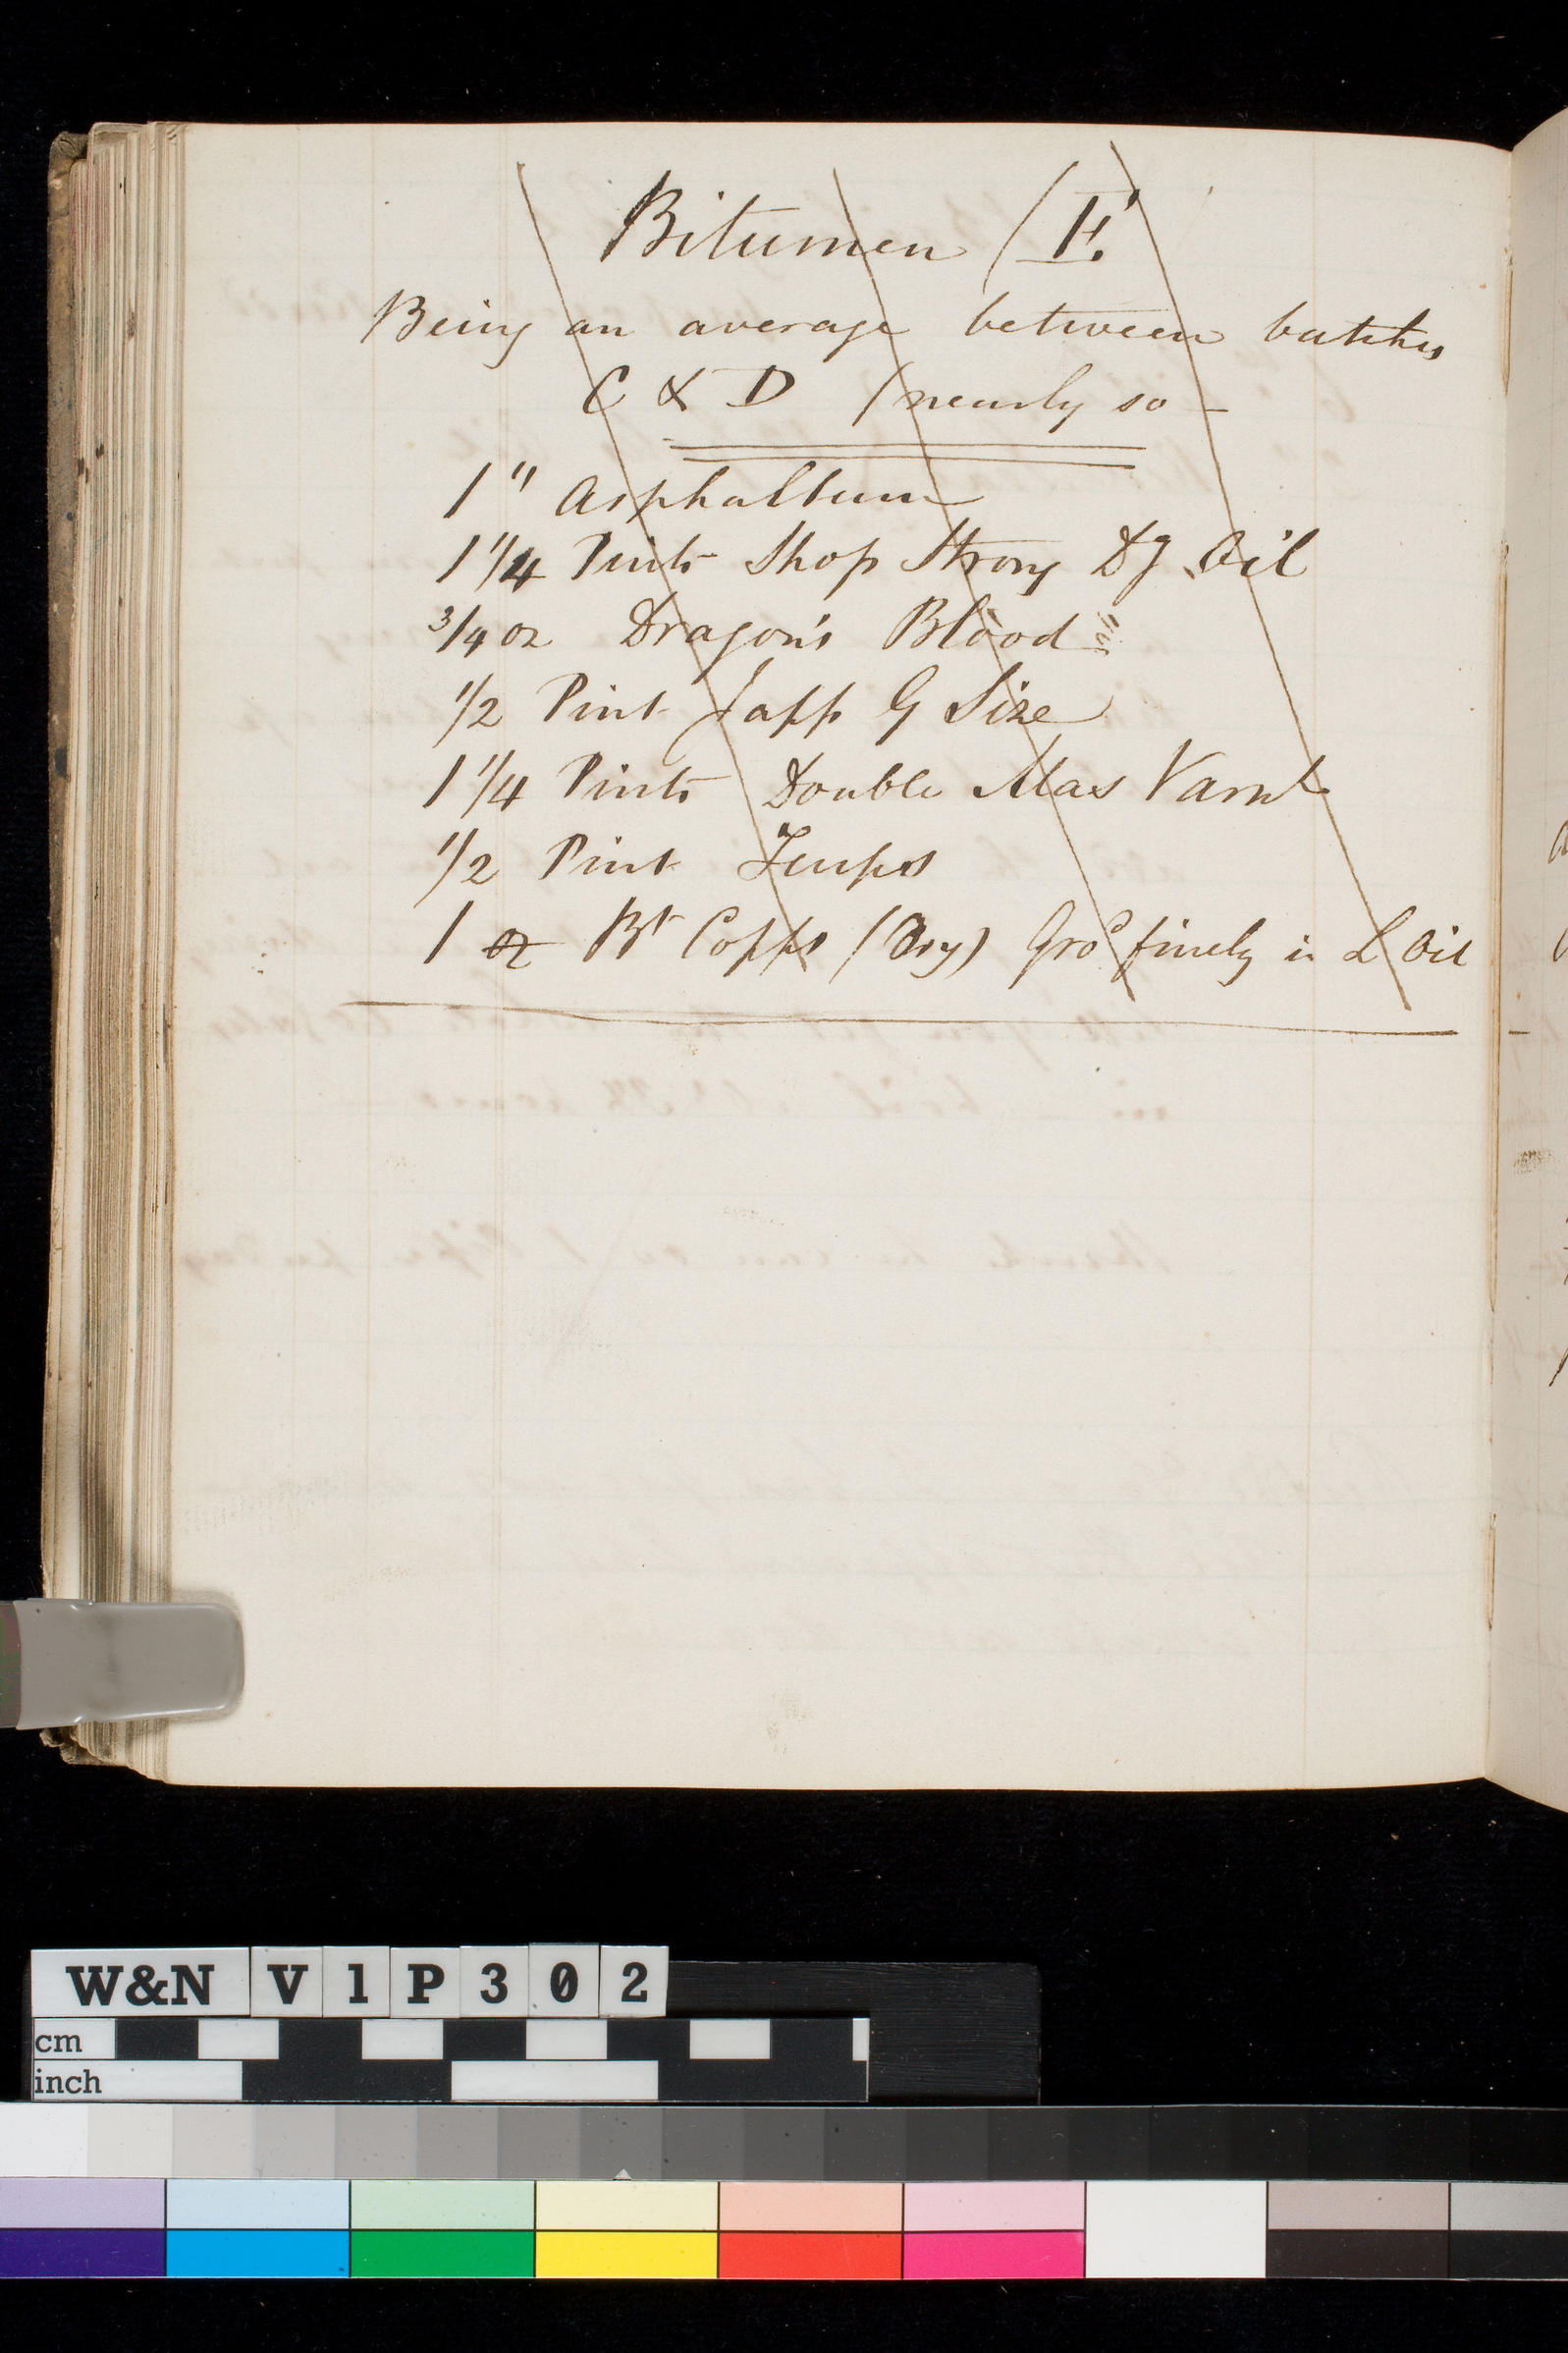 Bitumen (E.
Being an average between batches
C & D (nearly so -
1" Asphaltum
1 1/4 Pints Shop Strong Dg Oil
3/4 oz Dragon's Blood
1/2 Pint Japp G Size
1 1/4 Pints Double Mas Varnh
1/2 Pint Turps
1 oz Bt Copps (Dry) Grod finely in L Oil
W&N V1P302
cm
inch